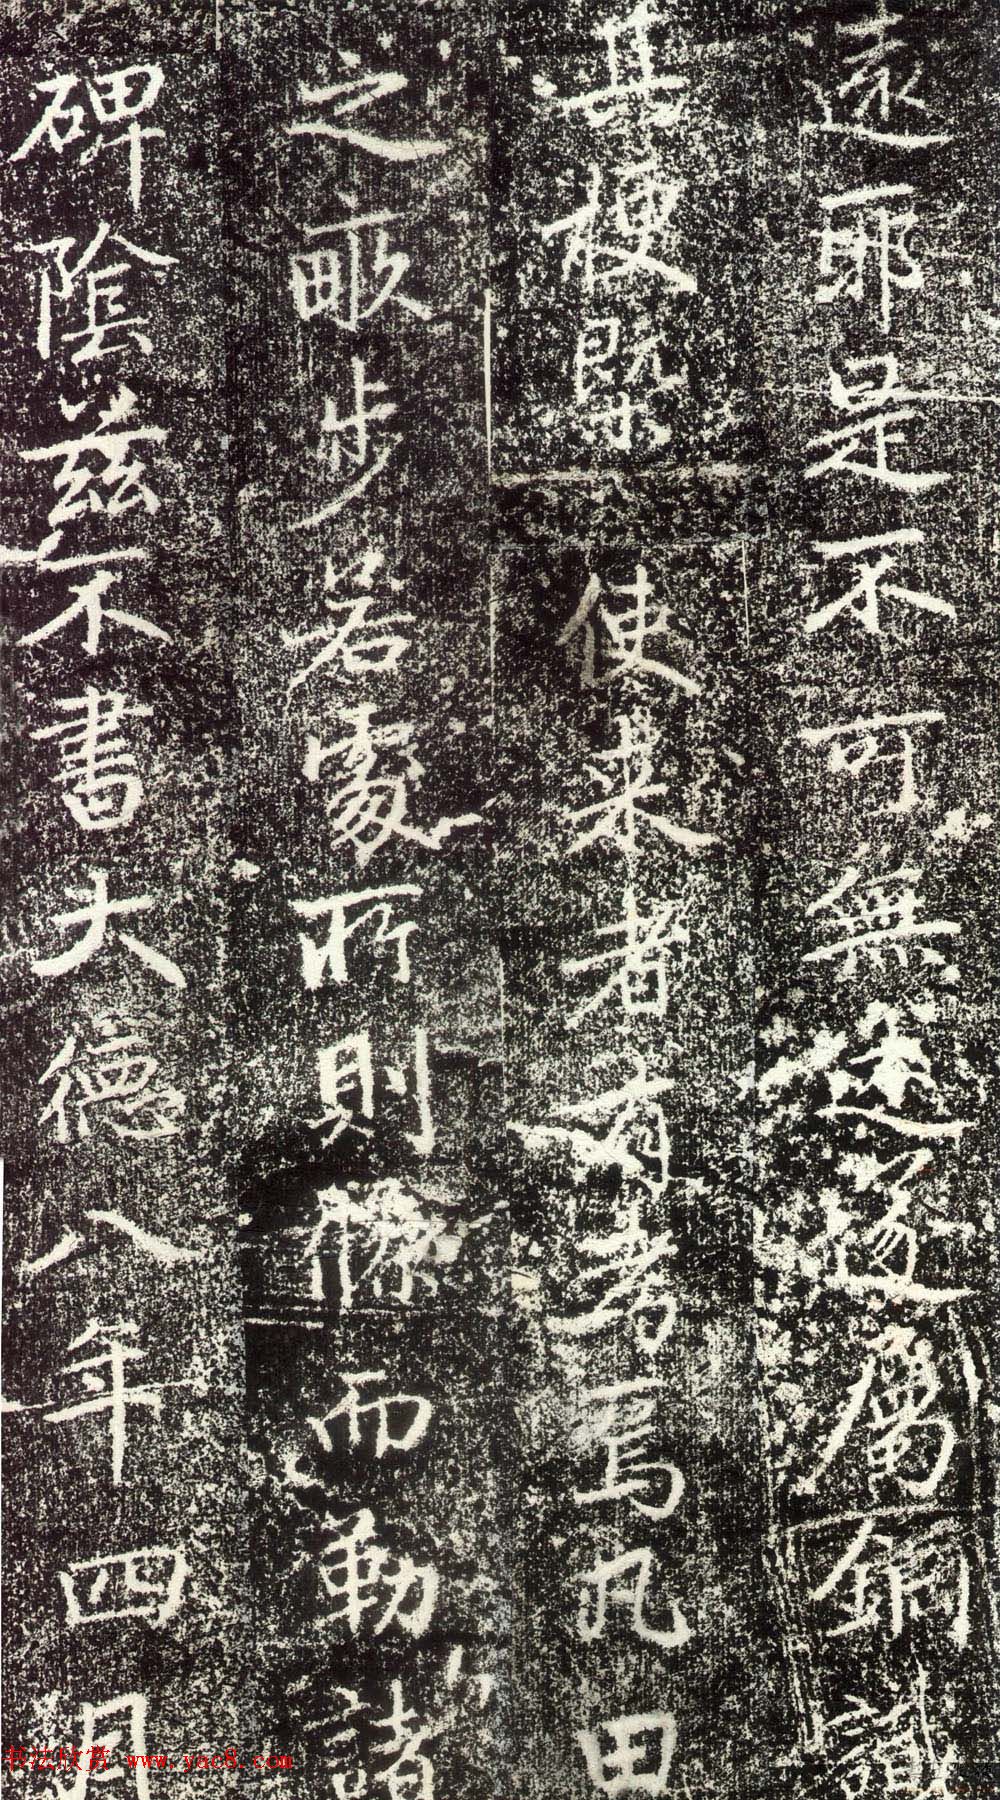 遠耶是不可無述遂属鉶識
其梗槩使来者有考焉凡田
之畝步名處所則條而勒諸
碑陰兹不書大德八年四月
书法欣赏 www.yac8.com